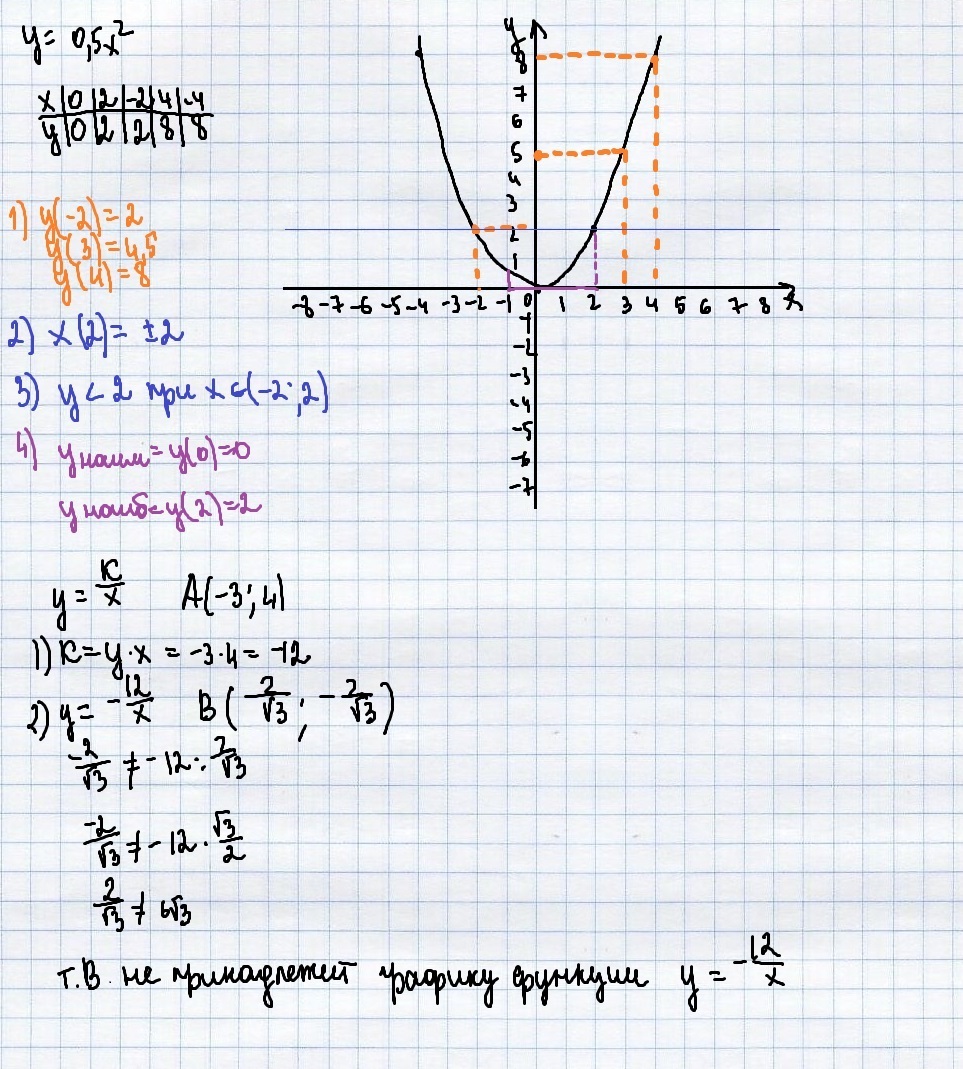 y = 0,5x²
x | 0 | 2 | -2 | 4 | -4
y | 0 | 2 | 2 | 8 | 8
1) y(-2) = 2
y(3) = 4,5
y(4) = 8
2) x(2) = ±2
3) y < 2 при x ∈ (-2; 2)
4) y наим = y(0) = 0
y наиб = y(2) = 2
y
8
7
6
5
4
3
2
1
-8 -7 -6 -5 -4 -3 -2 -1 0 1 2 3 4 5 6 7 8 x
-1
-2
-3
-4
-5
-6
-7
y = к/x A(-3; 4)
1) к = y·x = -3·4 = -12
2) y = -12/x B(2/√3; -2/√3)
-2/√3 ≠ -12 : 2/√3
-2/√3 ≠ -12 · √3/2
2/√3 ≠ 6√3
т.В. не принадлежит графику функции y = -12/x